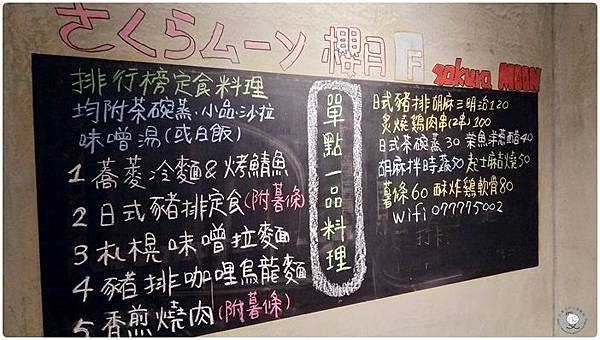 さくらムーン 櫻月 sakura MOON
排行榜定食料理
均附茶碗蒸·小品·沙拉
味噌湯(或白飯)
1 蕎菱冷麵&烤鯖魚
2 日式豬排定食(附薯條)
3 札幌味噌拉麵
4 豬排咖哩烏龍麵
5 香煎燒肉(附薯條)
單點一品料理
日式豬排胡麻三明治120
炙燒鷄肉串(2串)100
日式茶碗蒸30 柴魚洋蔥醋40
胡麻拌時蔬50 起士麻吉燒50
薯條60 酥炸鷄軟骨80
wifi 077775002
打卡